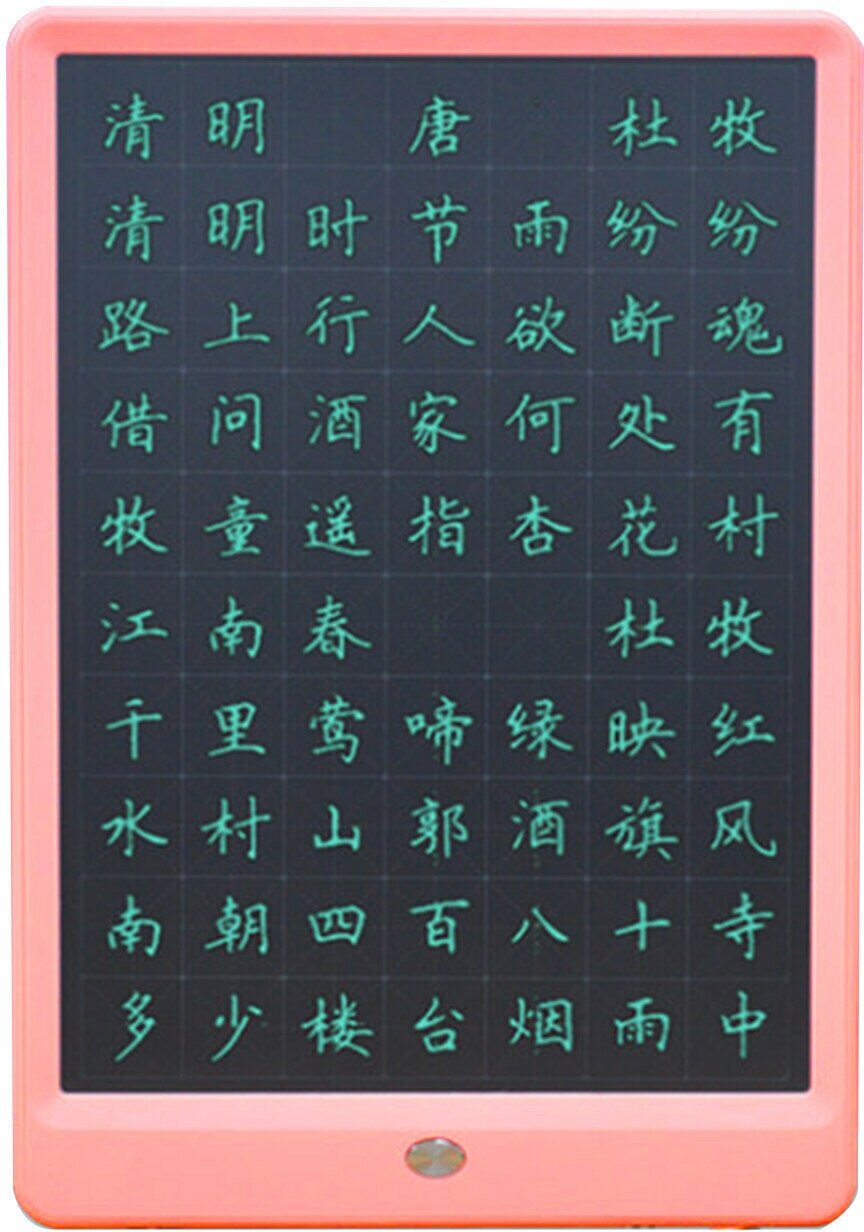 清明 唐 杜牧
清明时节雨纷纷
路上行人欲断魂
借问酒家何处有
牧童遥指杏花村
江南春 杜牧
千里莺啼绿映红
水村山郭酒旗风
南朝四百八十寺
多少楼台烟雨中